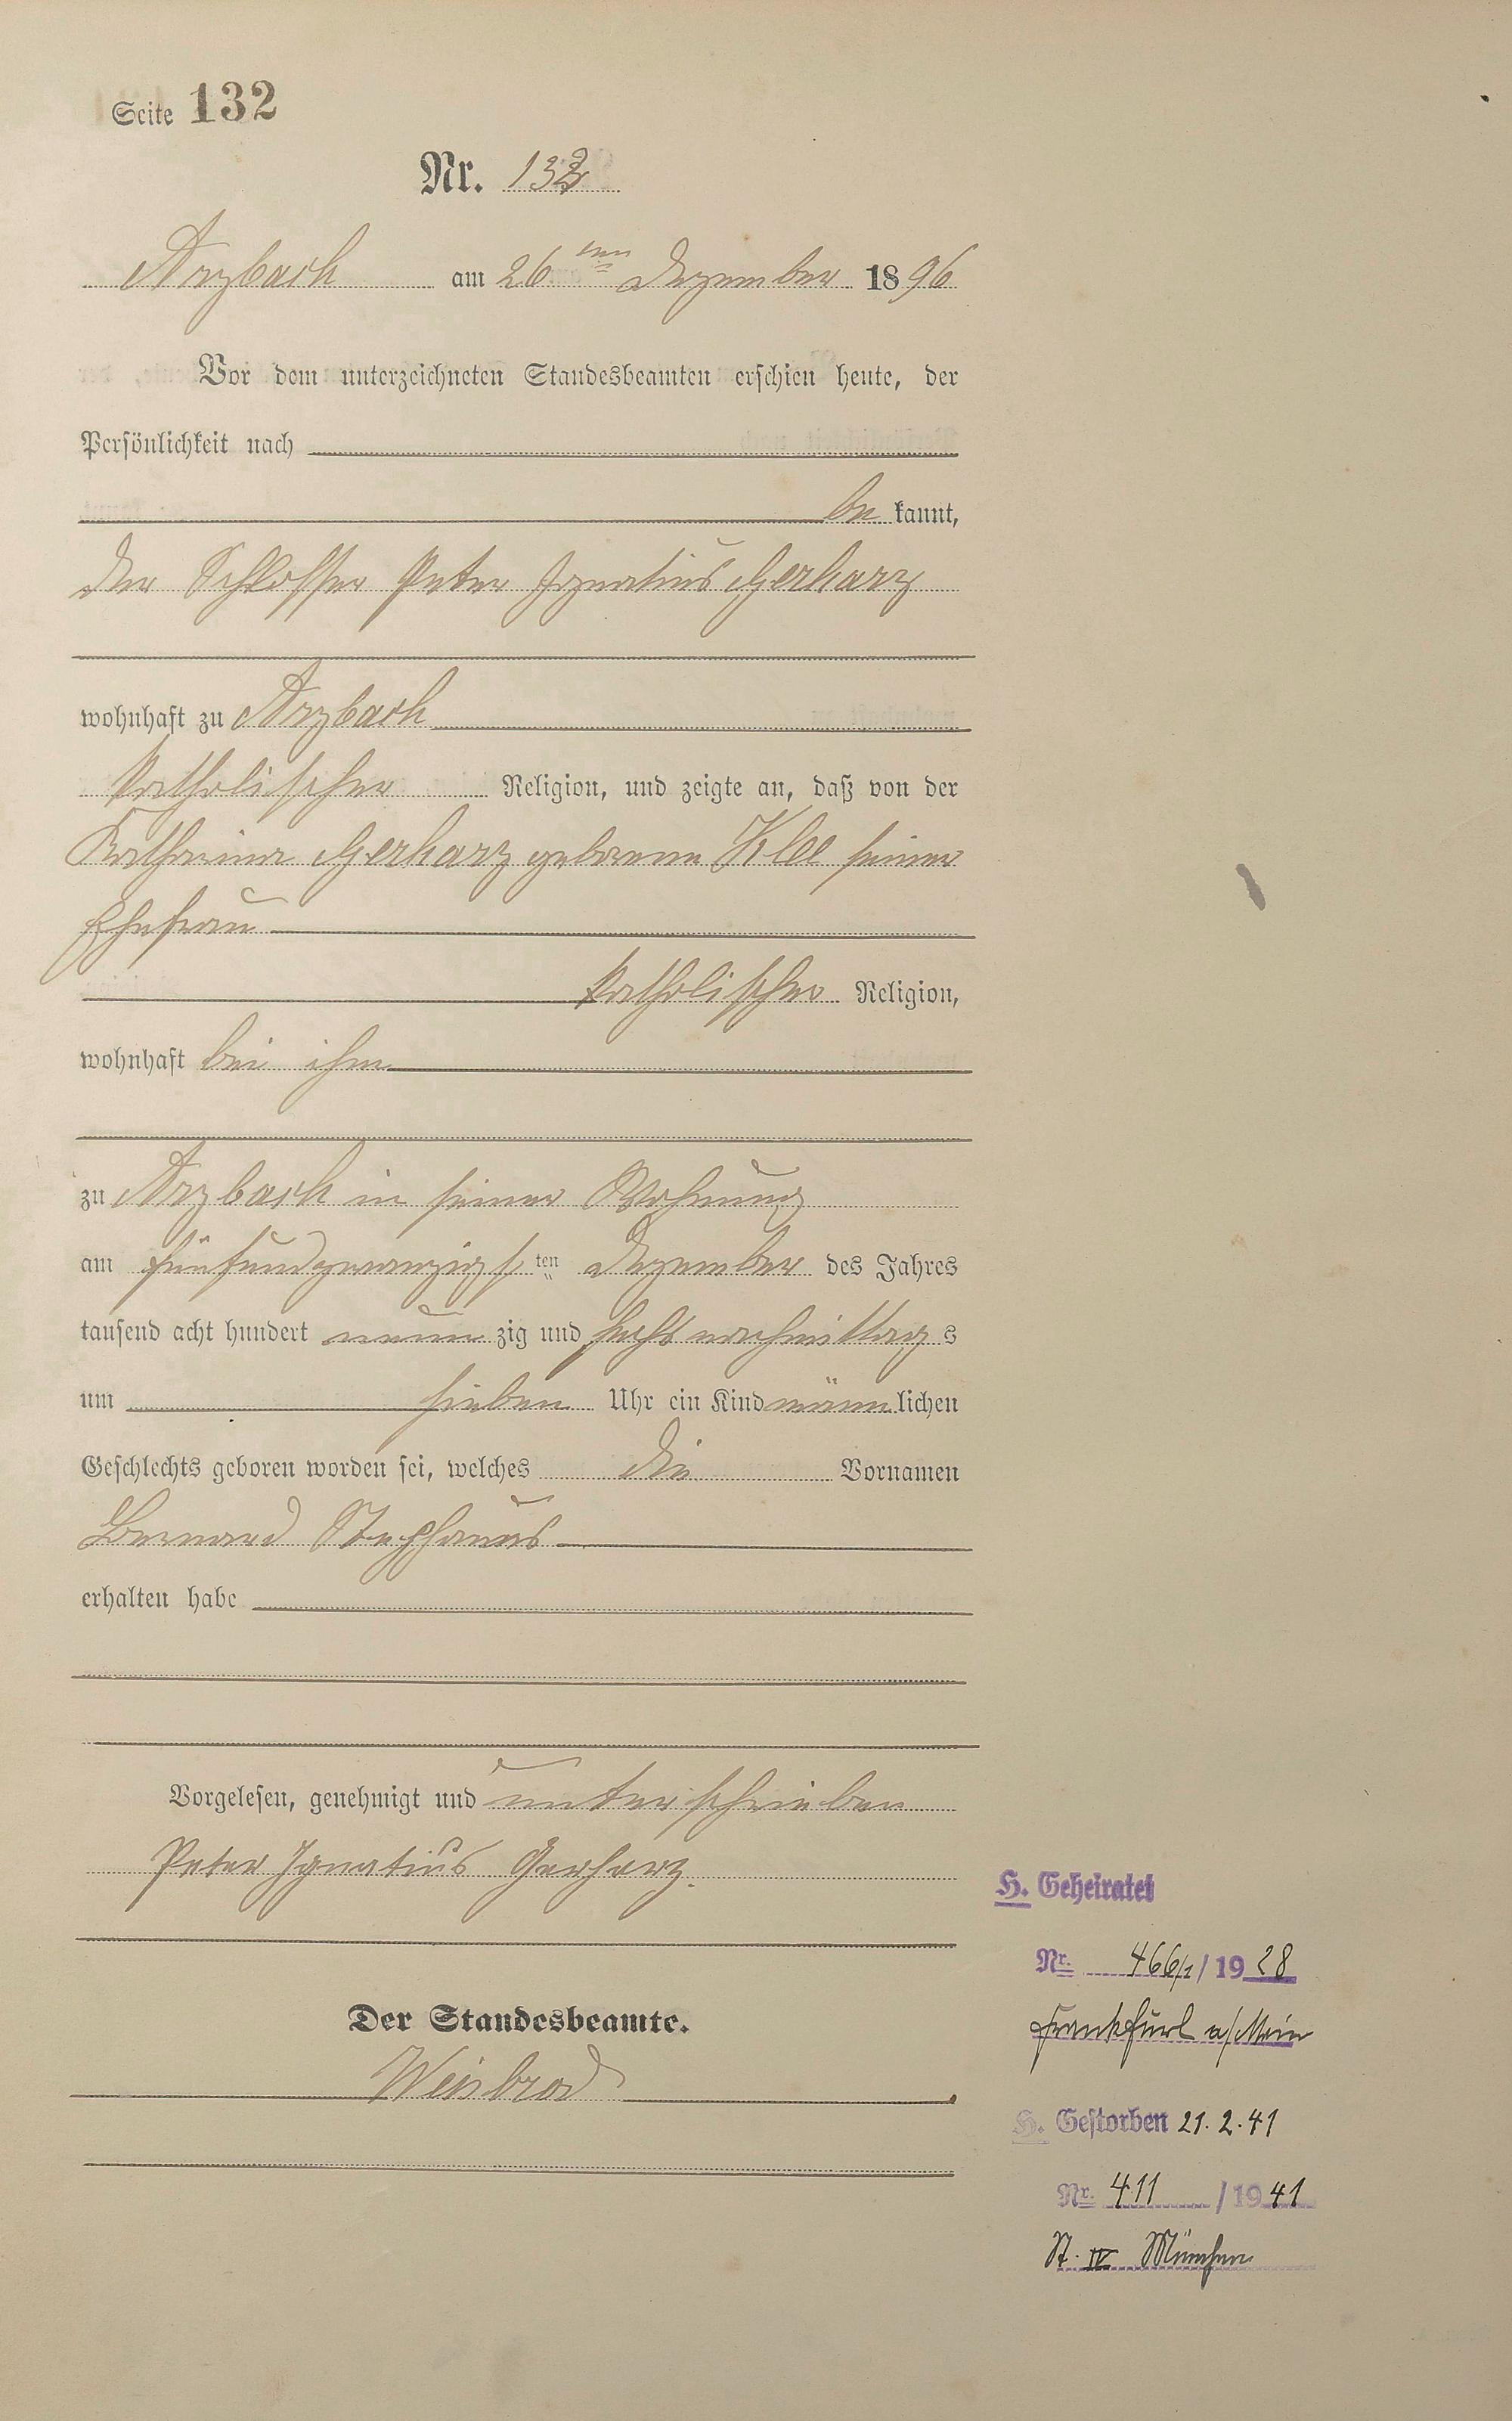 Seite 132
Nr. 132
Arzbach am 26ten Dezember 1896
Vor dem unterzeichneten Standesbeamten erschien heute, der
Persönlichkeit nach
be kannt,
der Schlosser Peter Ignatius Gerharz
wohnhaft zu Arzbach
katholischer Religion, und zeigte an, daß von der
Katharina Gerharz geborene Klee seiner
Ehefrau
katholischer Religion,
wohnhaft bei ihm
zu Arzbach in seiner Wohnung
am fünfundzwanzigsten Dezember des Jahres
tausend acht hundert neunzig und sechs nachmittags
um sieben Uhr ein Kind männlichen
Geschlechts geboren worden sei, welches die Vornamen
Bernard Stephanus
erhalten habe
Vorgelesen, genehmigt und unterschrieben
Peter Ignatius Gerharz.
Der Standesbeamte.
Weisbrod
H. Geheiratet
Nr. 466/1/1928
Frankfurt a/Main
H. Gestorben 21.2.41
Nr. 411/1941
St. IV München